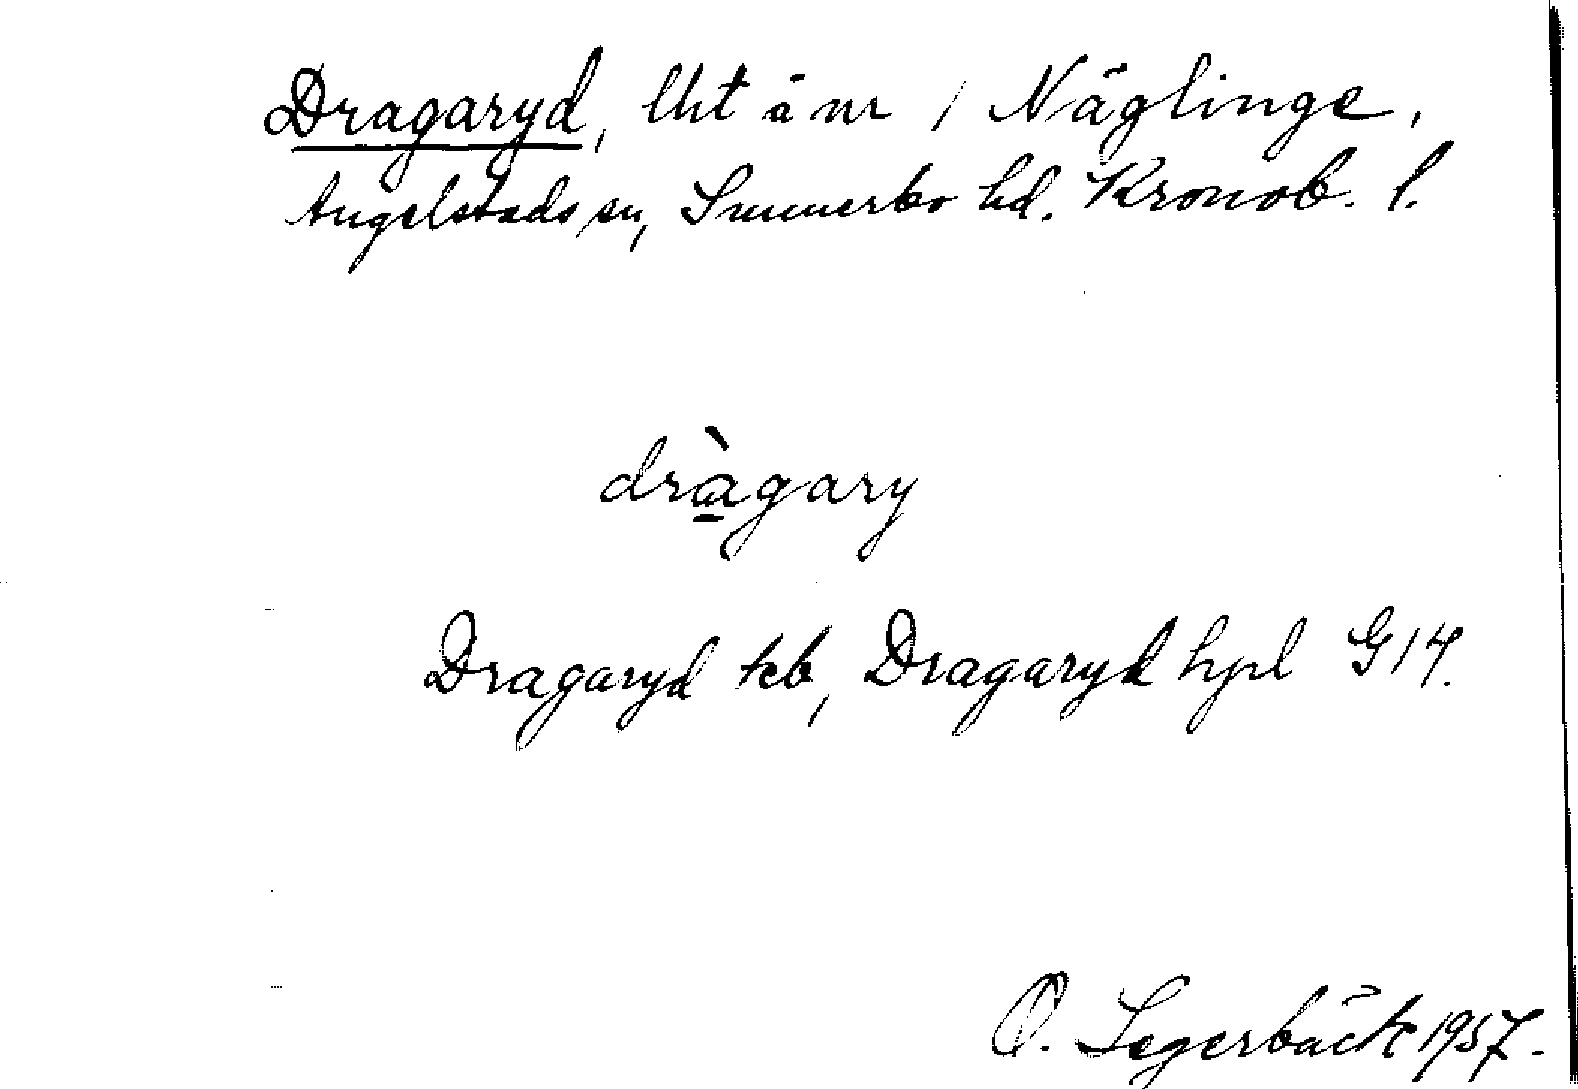 Dragaryd, lht å nr 1 Näglinge,
Angelstads sn, Sunnerbo hd. Kronob. l.
dràgary
Dragaryd tcb, Dragaryd hpl G14.
O. Segerbäck 1957.